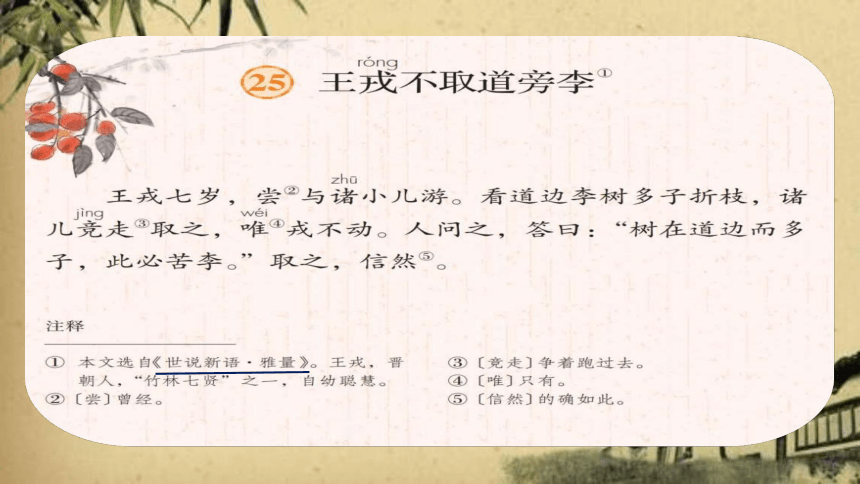 róng
25 王戎不取道旁李①
zhū
王戎七岁，尝②与诸小儿游。看道边李树多子折枝，诸
jìng wéi
儿竞走③取之，唯④戎不动。人问之，答曰：“树在道边而多
子，此必苦李。”取之，信然⑤。
注释
① 本文选自《世说新语·雅量》。王戎，晋
朝人，“竹林七贤”之一，自幼聪慧。
② 〔尝〕曾经。
③ 〔竞走〕争着跑过去。
④ 〔唯〕只有。
⑤ 〔信然〕的确如此。